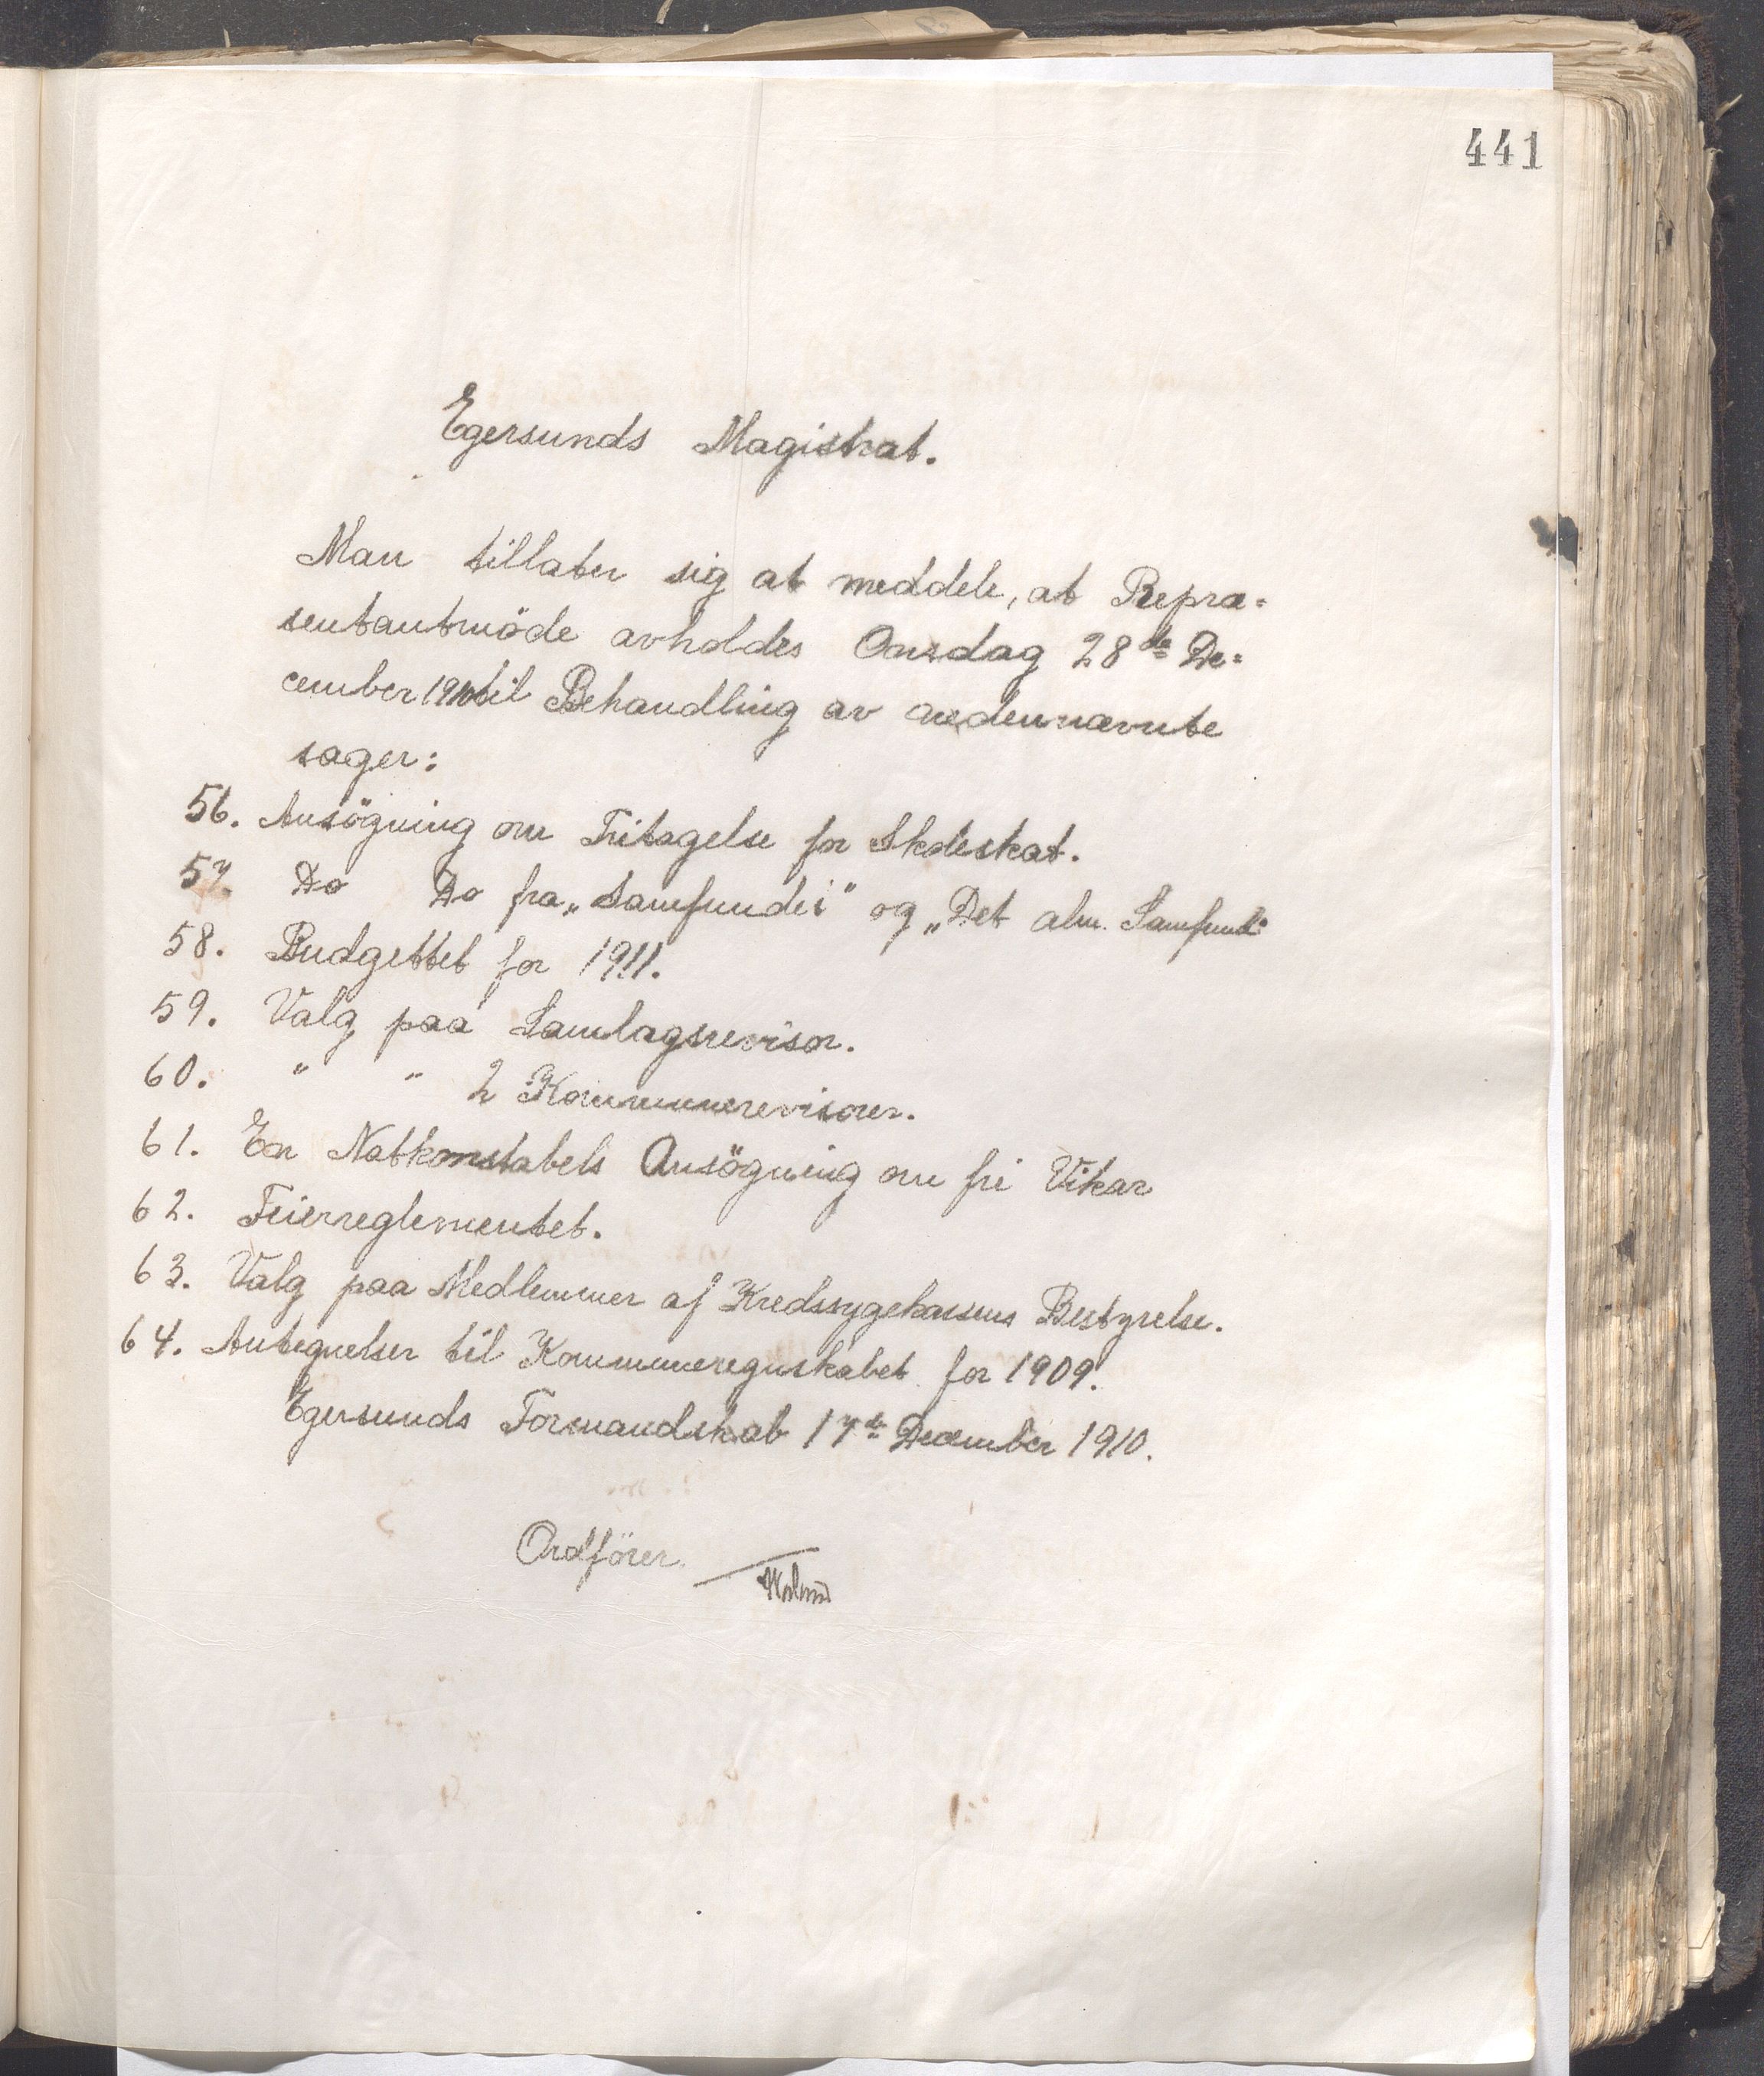 441
Egersunds Magistrat.
Man tillater sig at meddele, at Repræ=
sentantmöde avholdes Onsdag 28de De=
cember 1910 til Behandling av nedennævnte
sager:
56. Ansögning om Fritagelse for Skoleskat.
57. Do Do fra „Samfundet" og „Det alm. Samfund"
58. Budgettet for 1911.
59. Valg paa Samlagsrevisor.
60. " " 2 Kommunerevisorer.
61. En Natkonstabels Ansögning om fri Vikar
62. Feierreglementet.
63. Valg paa Medlemmer af Kredssygekassens Bestyrelse.
64. Antegnelser til Kommuneregnskabet for 1909.
Egersunds Formandskab 17de December 1910.
Ordförer